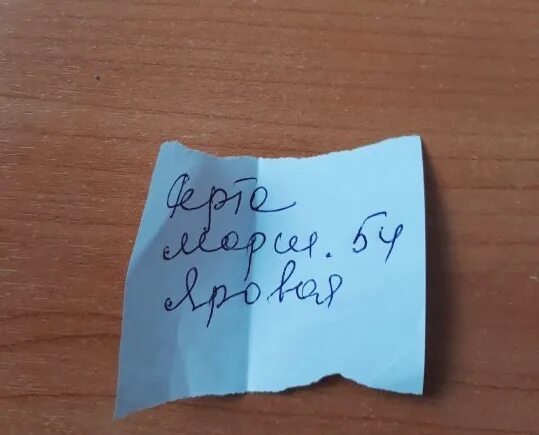 Ферта
марш. 54
Яровая